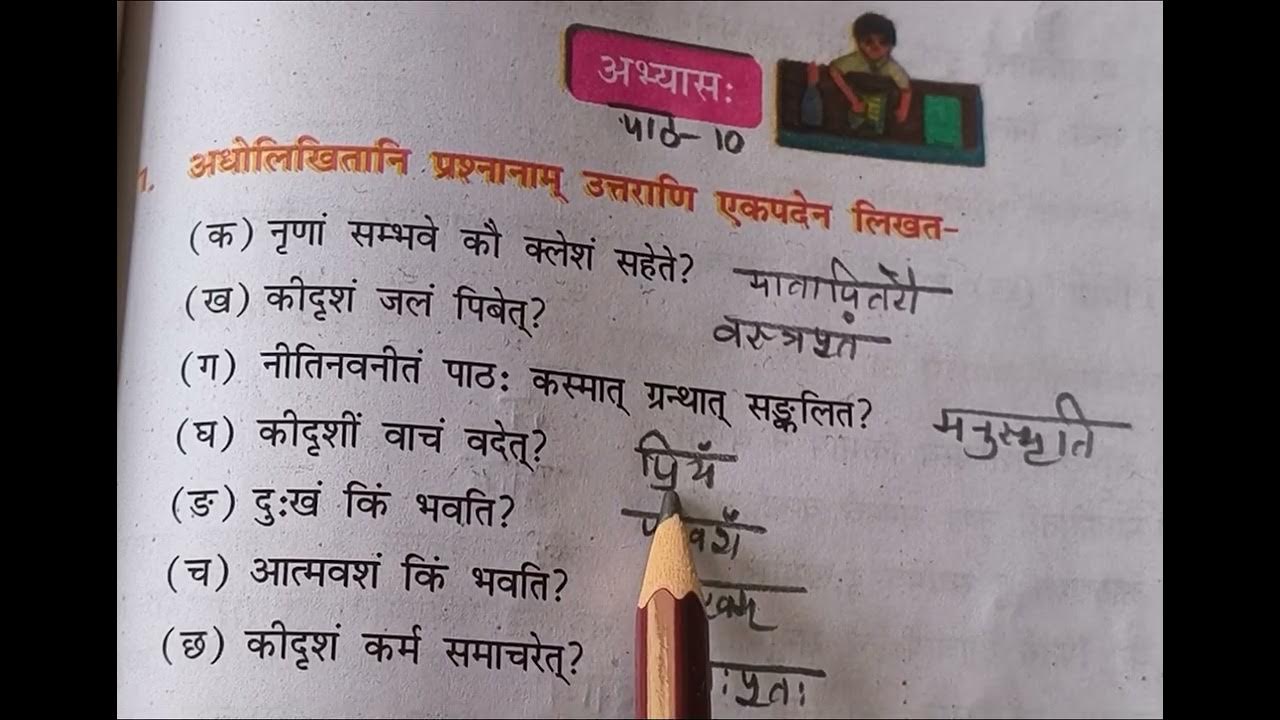 अभ्यासः
पाठ-10
1. अधोलिखितानि प्रश्नानाम् उत्तराणि एकपदेन लिखत-
(क) नृणां सम्भवे कौ क्लेशं सहेते? मातापितरौ
(ख) कीदृशं जलं पिबेत्? वस्त्रपूतं
(ग) नीतिनवनीतं पाठः कस्मात् ग्रन्थात् सङ्कलित? मनुस्मृति
(घ) कीदृशीं वाचं वदेत्? प्रियँ
(ङ) दुःखं किं भवति?
(च) आत्मवशं किं भवति?
(छ) कीदृशं कर्म समाचरेत्?